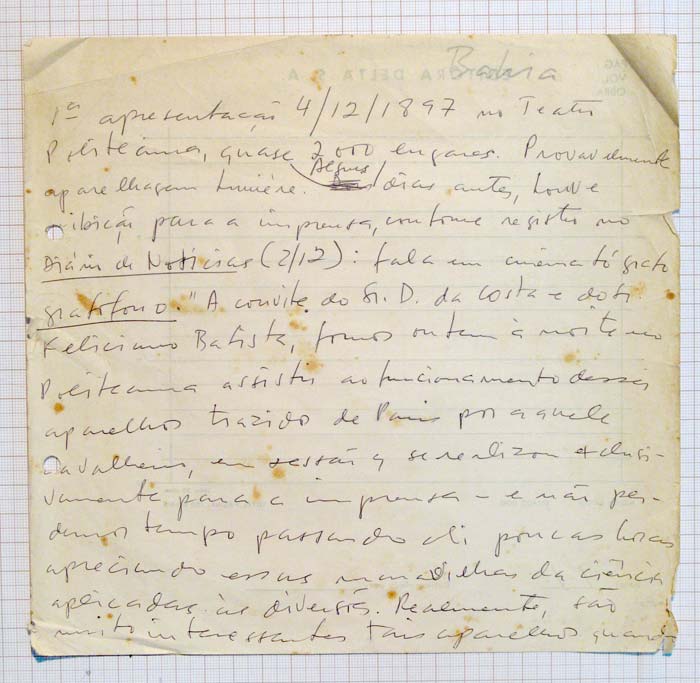 Bahia
1ª apresentação 4/12/1897 no Teatro
Politeama, quase 2.000 lugares. Provavelmente
aparelhagem Lumière. Alguns dias antes, houve
exibição para a imprensa, conforme registro no
Diário de Notícias (2/12): fala em cinematógrafo
grafofono. "A convite do Sr. D. da Costa e do Sr.
Feliciano Batista, fomos ontem à noite no
Politeama assistir ao funcionamento desses
aparelhos trazido de Paris por aquele
cavalheiro, em sessão q se realizou exclusi-
vamente para a imprensa - e não per-
demos tempo passando ali poucas horas
apreciando essas maravilhas da ciência
aplicadas às diversões. Realmente, são
muito interessantes tais aparelhos quando